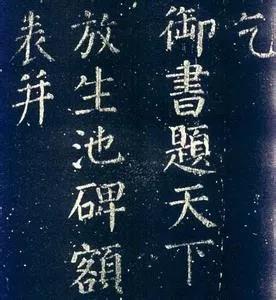 乞
御書題天下
放生池碑額
表并